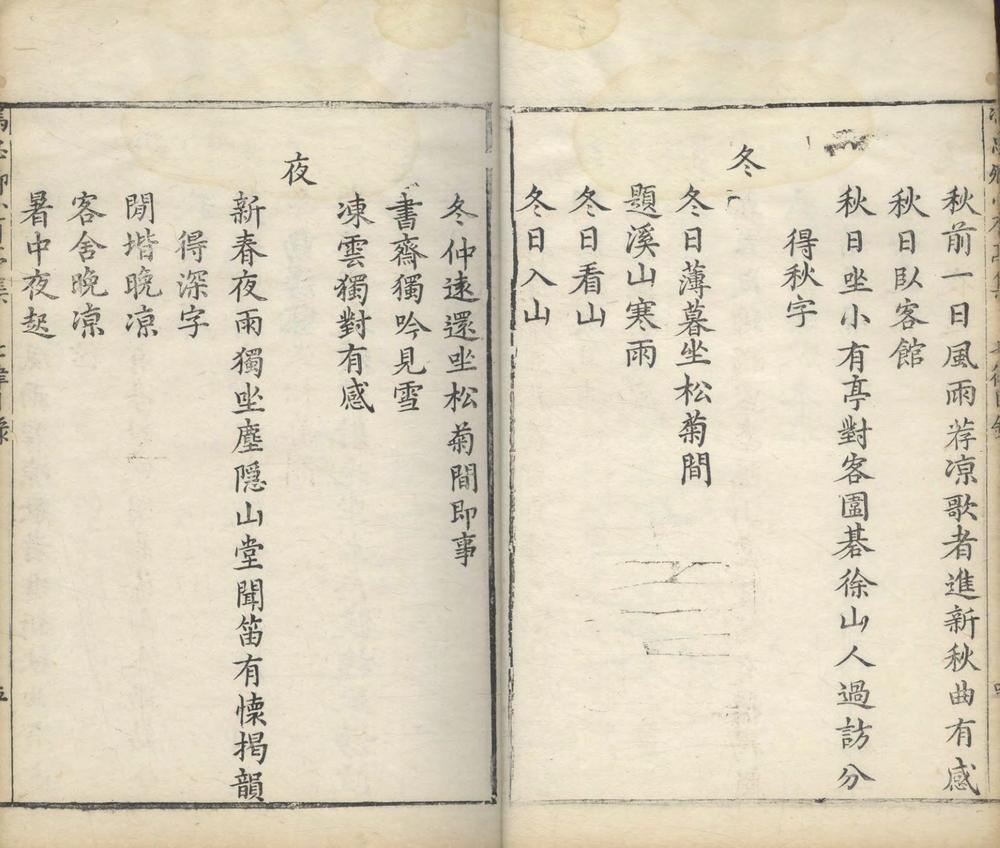 秋前一日風雨荐凉歌者進新秋曲有感
秋日臥客館
秋日坐小有亭對客圍碁徐山人過訪分
得秋字
冬
冬日薄暮坐松菊間
題溪山寒雨
冬日看山
冬日入山
冬仲遠還坐松菊間即事
書齋獨吟見雪
凍雲獨對有感
夜
新春夜雨獨坐塵隱山堂聞笛有懷揭韻
得深字
閒堦晚凉
客舍晚凉
暑中夜起